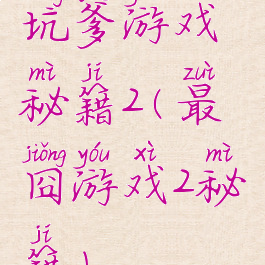 坑爹游戏
mì jí zuì
秘籍2(最
jiǒng yóu xì mì
囧游戏2秘
jí
籍)